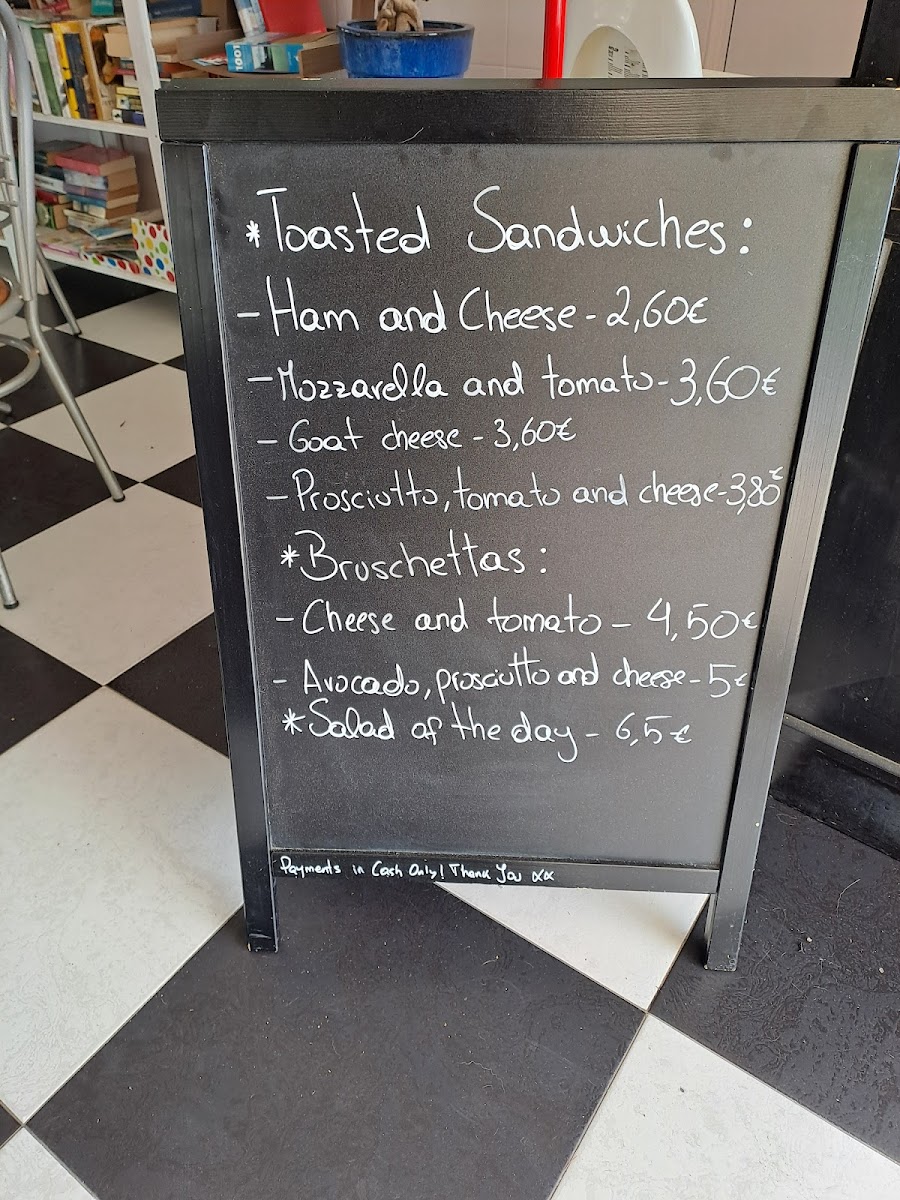 *Toasted Sandwiches:
- Ham and Cheese - 2,60€
- Mozzarella and tomato - 3,60€
- Goat cheese - 3,60€
- Prosciutto, tomato and cheese - 3,80€
*Bruschettas:
- Cheese and tomato - 4,50€
- Avocado, prosciutto and cheese - 5€
*Salad of the day - 6,5€
Payments in Cash Only! Thank You xx